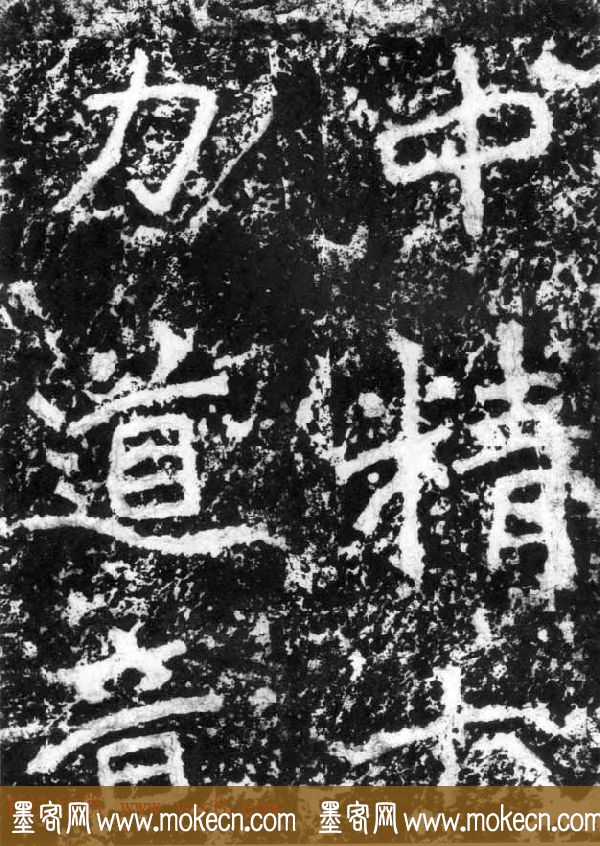 中精
力道
墨客网 www.mokecn.com 墨客网 www.mokecn.com